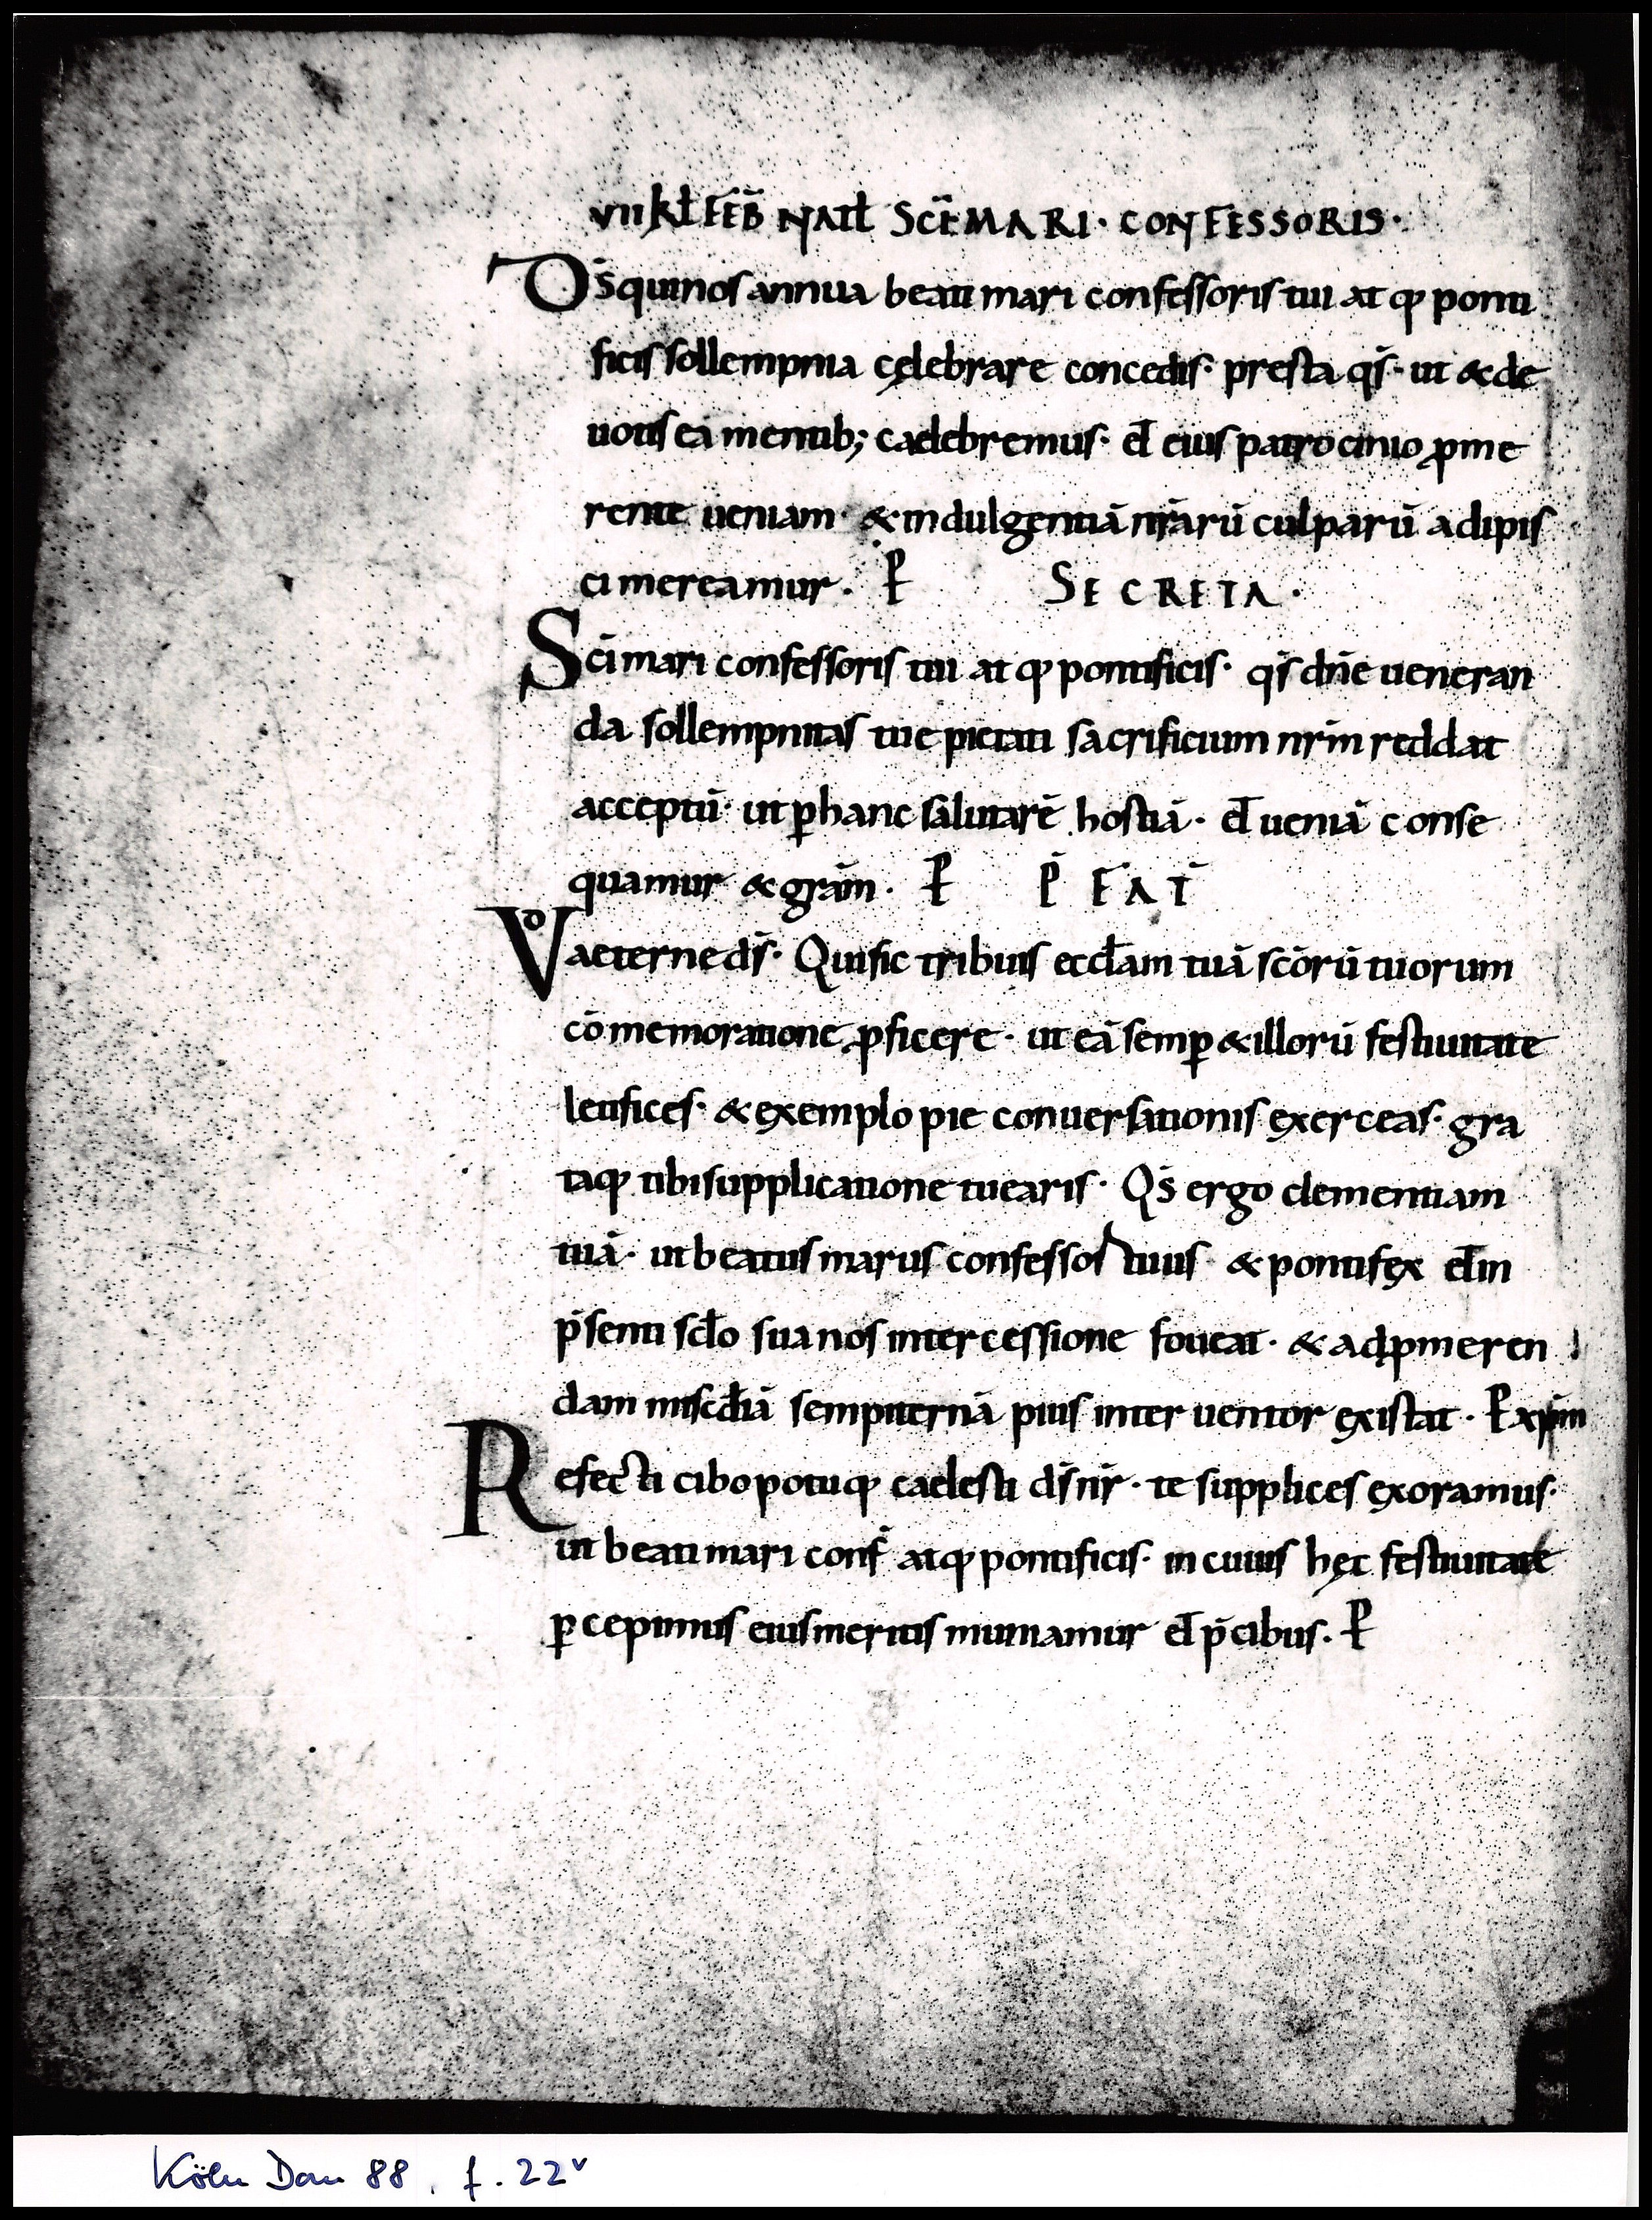 VII KƚFEB̄ NATƚ SC̄E MARI · CONFESSORIS ·
Ds̄ qui nos annua beati mari confessoris tui atq; ponti
ficis sollempnia cęlebrare concedis · presta qs̄ · ut & de
uotis eā mentib; caelebremus · et̄ eius patrocinio ꝓme
rente ueniam · & indulgentiā nr̄arū culparū adipis
ci mereamur · P̱ SECRETA ·
Sc̄i mari confessoris tui atq; pontificis · qs̄ dn̄e ueneran
da sollempnitas tue pietati sacrificium nr̄m reddat
acceptū · ut ꝑ hanc salutarē hostiā · et̄ ueniā conse
quamur & grām · P̱ P̄ FAT̄
VO aeterne ds̄ · Qui sic tribuis eccłam tuā sc̄orū tuorum
cōmemoratione ꝓficere · ut eā semꝑ & illorū festiuitate
letifices · & exemplo pie conuersationis exerceas · gra
taq; tibi supplicatione tuearis · Qs̄ ergo clementiam
tuā · ut beatus marus confessor tuus & pontifex et̄ in
p̄senti scło sua nos intercessione foueat · & ad ꝓmeren
dam miscđiā sempiternā pius interuentor existat · P̱ xp̄m
Refecti cibo potuq; caelesti ds̄ nr̄ · te supplices exoramus ·
ut beati mari conf̄ atq; pontificis · in cuius hęc festiuitate
ꝑcepimus eius meritis muniamur et̄ p̄cibus · P̱
Köln Dom 88, f. 22v